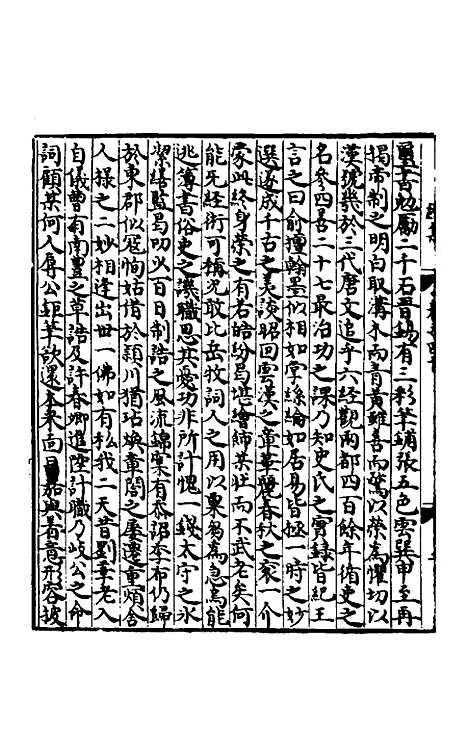 璽書勉厲二千石晋錫有三彩筆鋪張五色雲巽申至再
獨帝制之明白取溝木而青黃雖善而驚以榮爲懼切以
漢號幾於三代唐文追乎六經觀兩都四百餘年循吏之
名參四善二十七最治功之課乃知史氏之實録皆紀王
言之曰俞擅翰墨似相如掌絲綸如居易皆極一時之妙
選遂成千古之美談昭回雲漢之章華麗春秋之衮一介
蒙此終身榮之有若皓紛曷堪繪飾某壯而不武老矣何
能旡經術可稱况敢比岳牧詞人之用以粟芻爲急焉能
逃簿書俗吏之譏職思其憂功非所計愧一錢太守之氷
潔繕監曷叨以百日制誥之風流錦窠有忝詔奉布仍歸
於東郡似冦恂姑借於潁川猶玷煥章閣之屢遷重頻舍
人樣之二妙相逢出世一佛如有私我二天昔劉莘老入
自儀曹有南豐之草誥及許春卿進陞計職乃岐公之命
詞顧某何人辱公鉅筆欲還本來面目茄與着意形容披